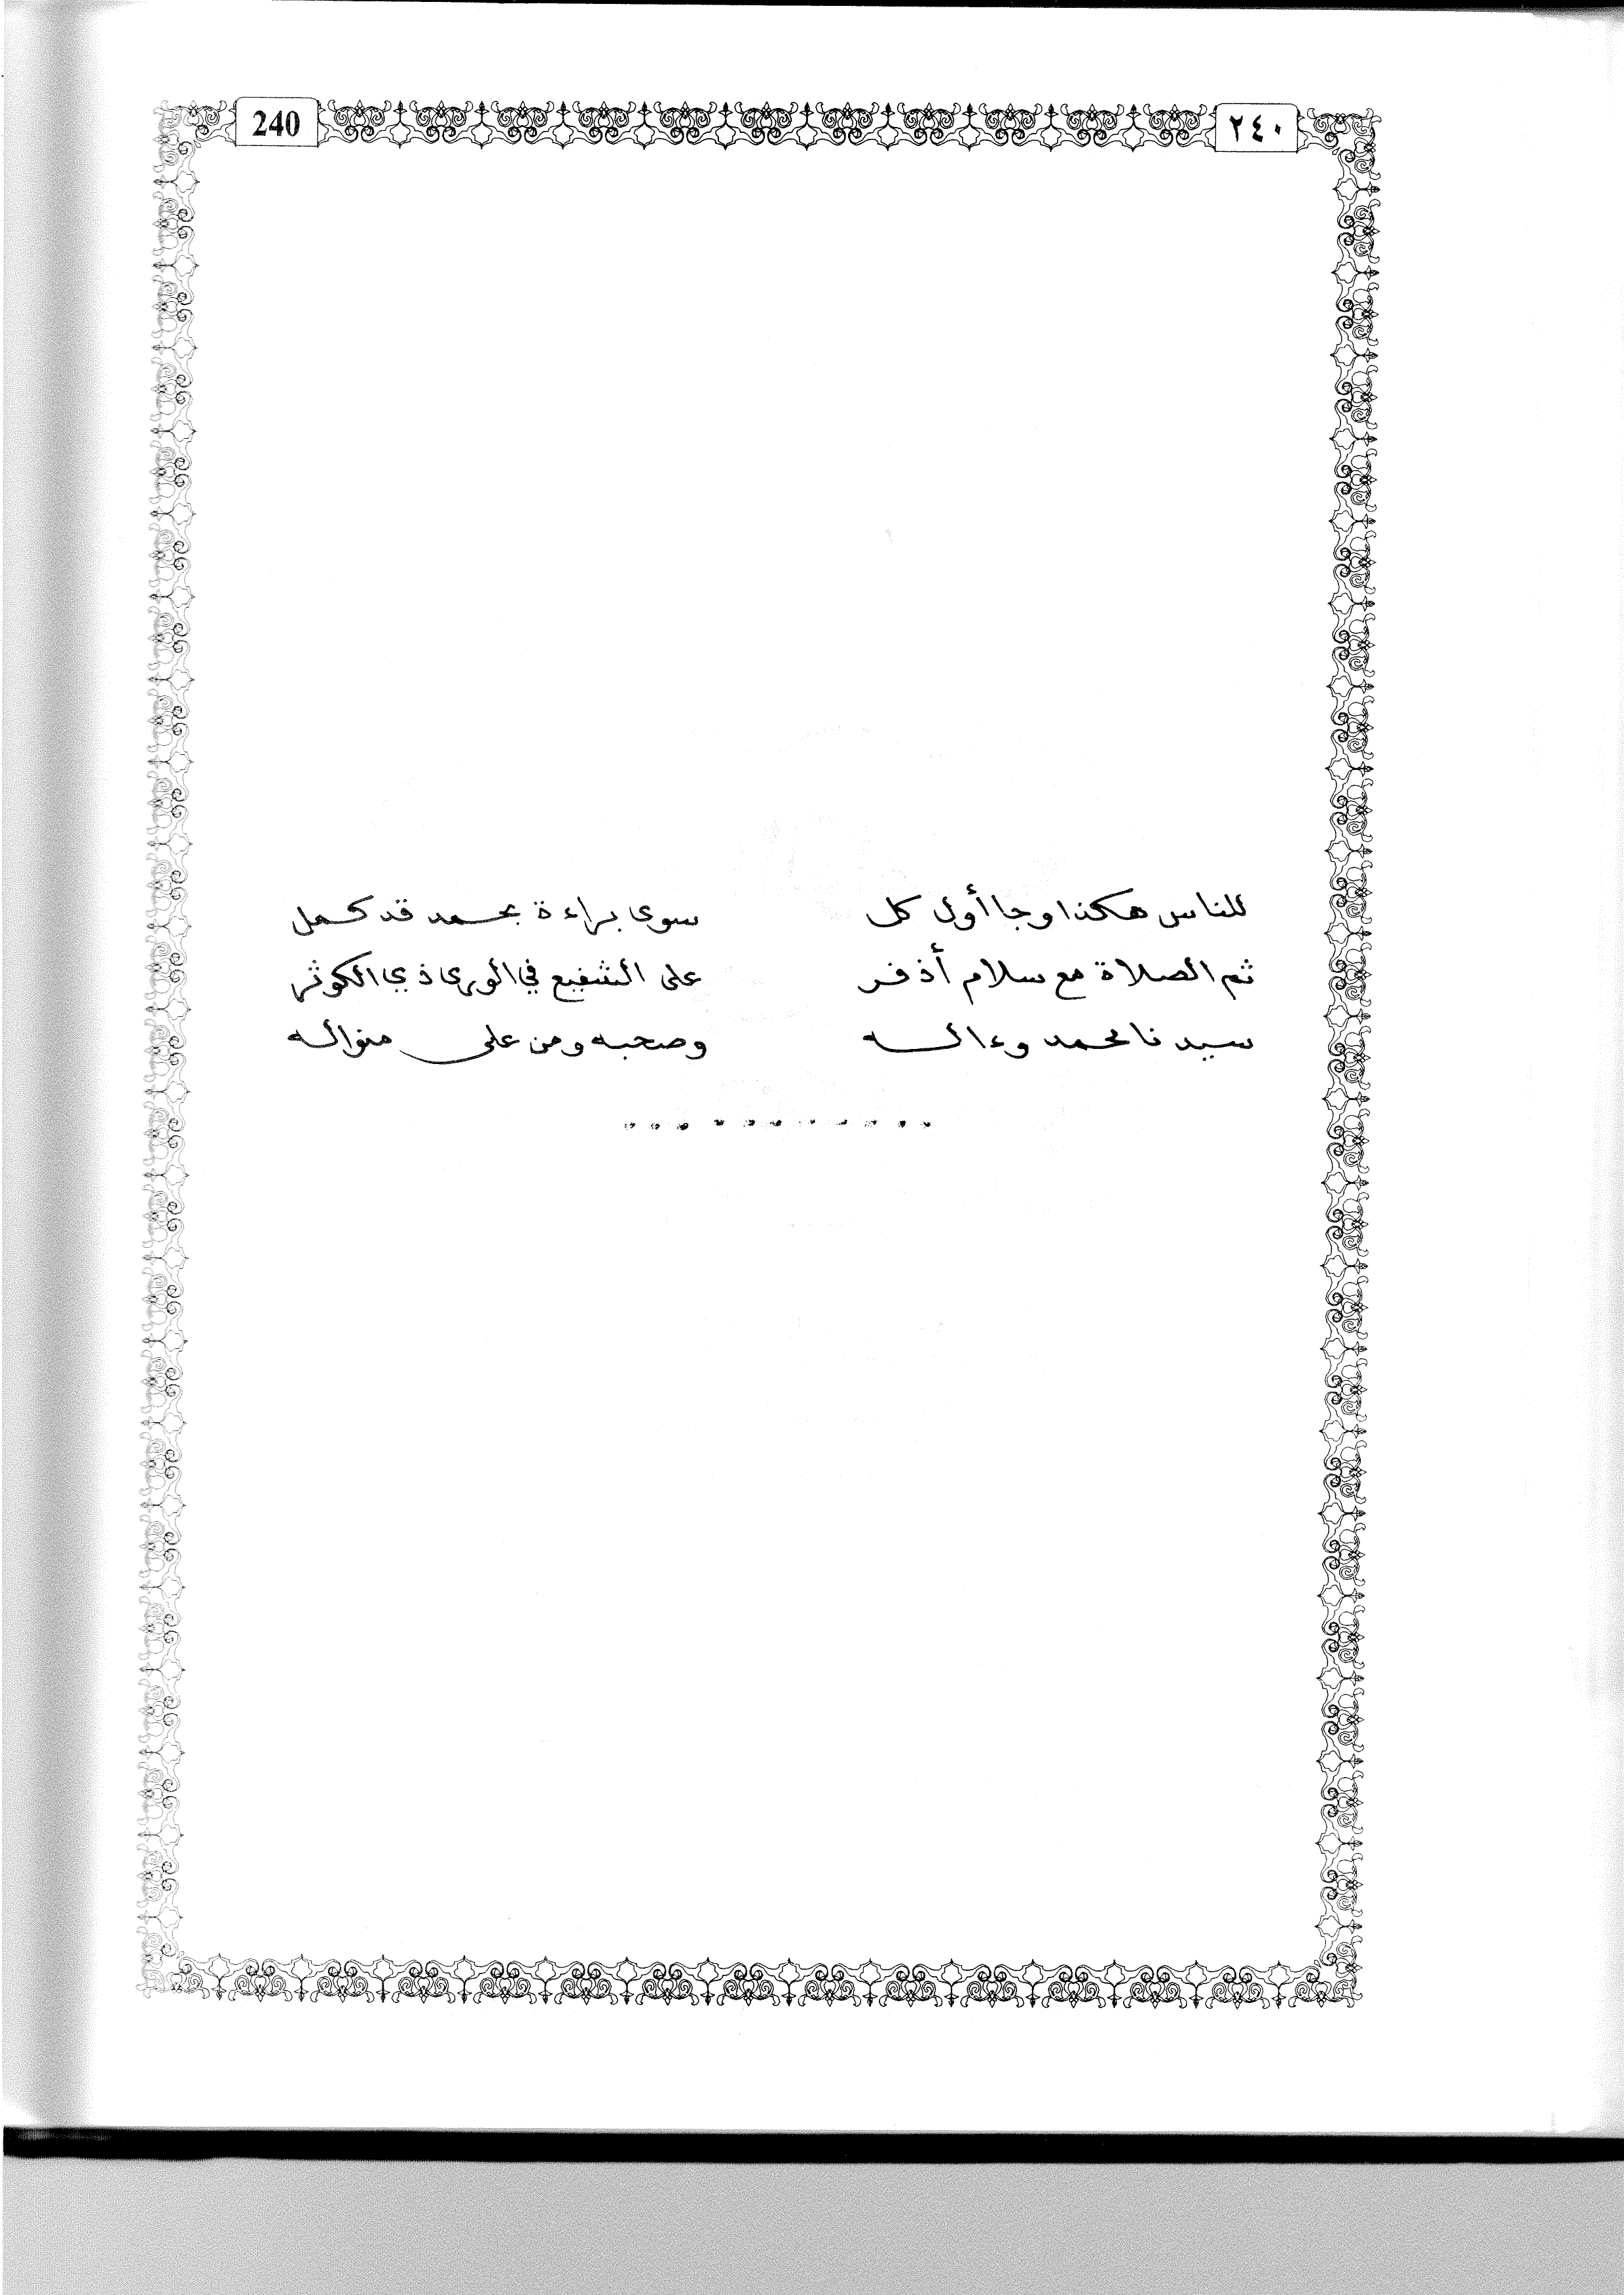 240 ٢٤٠
للناس هكذا وجا أول كل سوى براءة بحمد قد كمل
ثم الصلاة مع سلام أذفر على الشفيع في الورى ذي الكوثر
سيدنا محمد وءاله وصحبه ومن على منواله
............